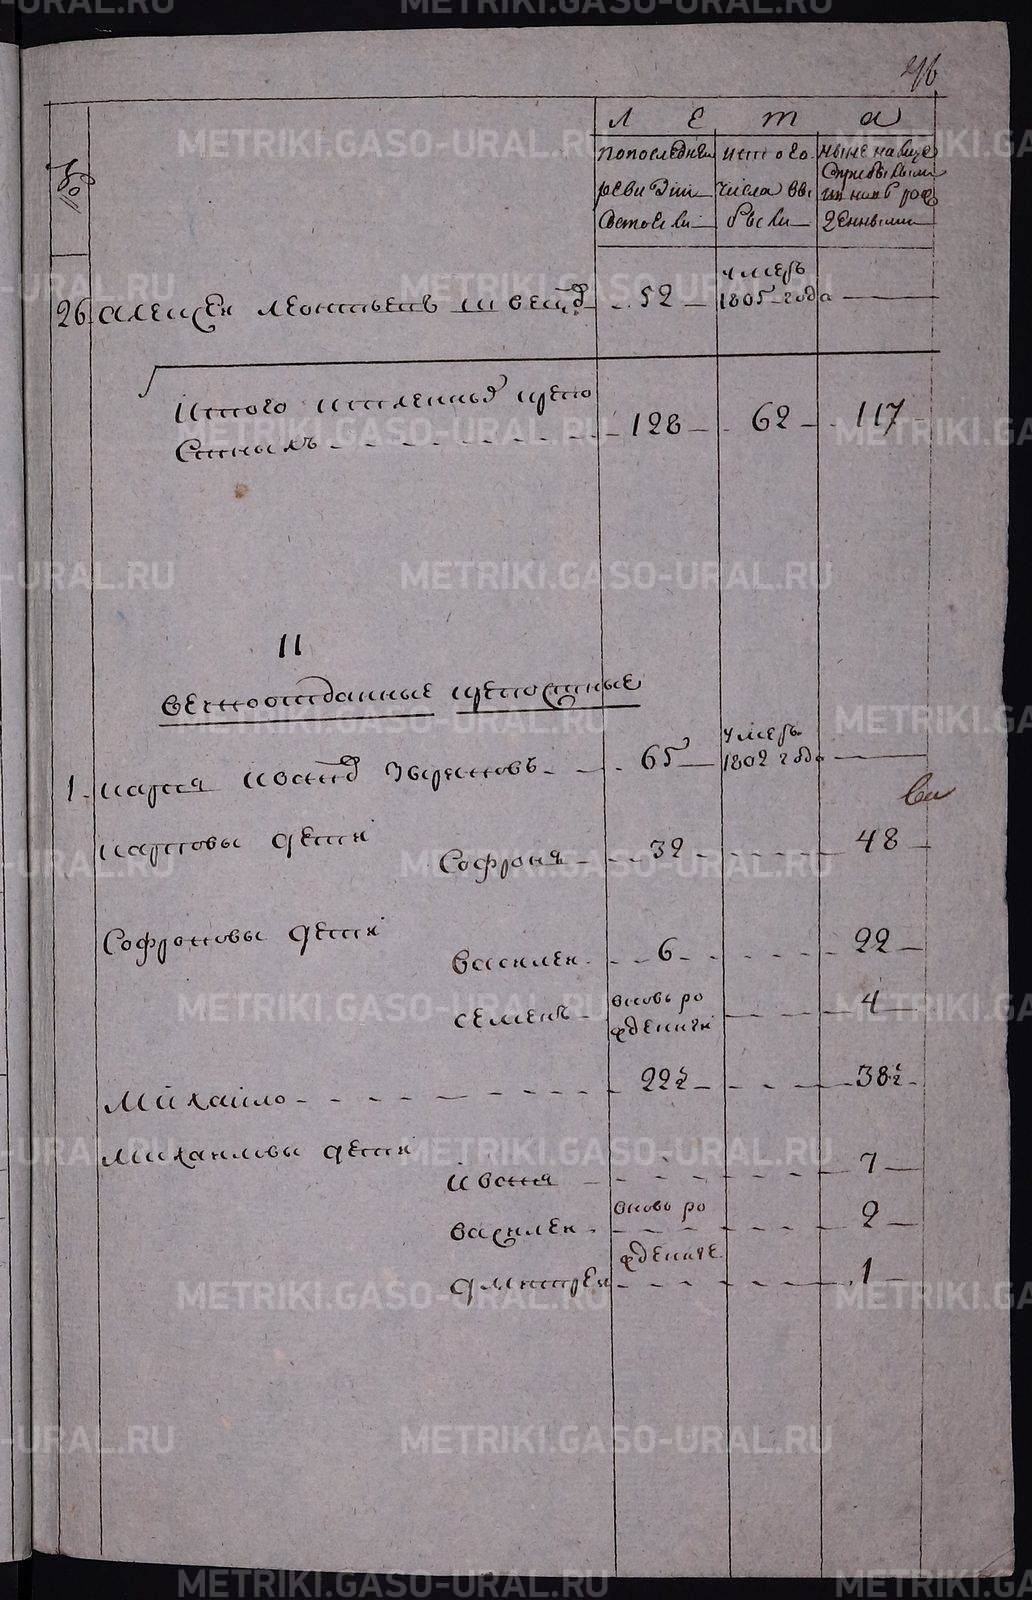 METRIKI.GASO-URAL.RU
46
№
Л е т а
по последней
ревизии
состояли
ис того
числа вы
были
ныне на лицо
с прибылыми
и новорож
денными
26 Алексей Леонтьев швец
52
умеръ
1805 года
Итого исчисленных крепо
стныхъ
128
62
117
II
Вечноотданные крепостные
1 Карпъ Иванов Зыряновъ
65
умеръ
1802 года
Карповы дети
Софронъ
32
48
Софроновы дети
Василей
6
22
Семенъ
вновь ро
жденный
4
Михайло
22½
38½
Михайловы дети
Иванъ
7
Василей
вновь ро
2
жденные
Дмитрей
1